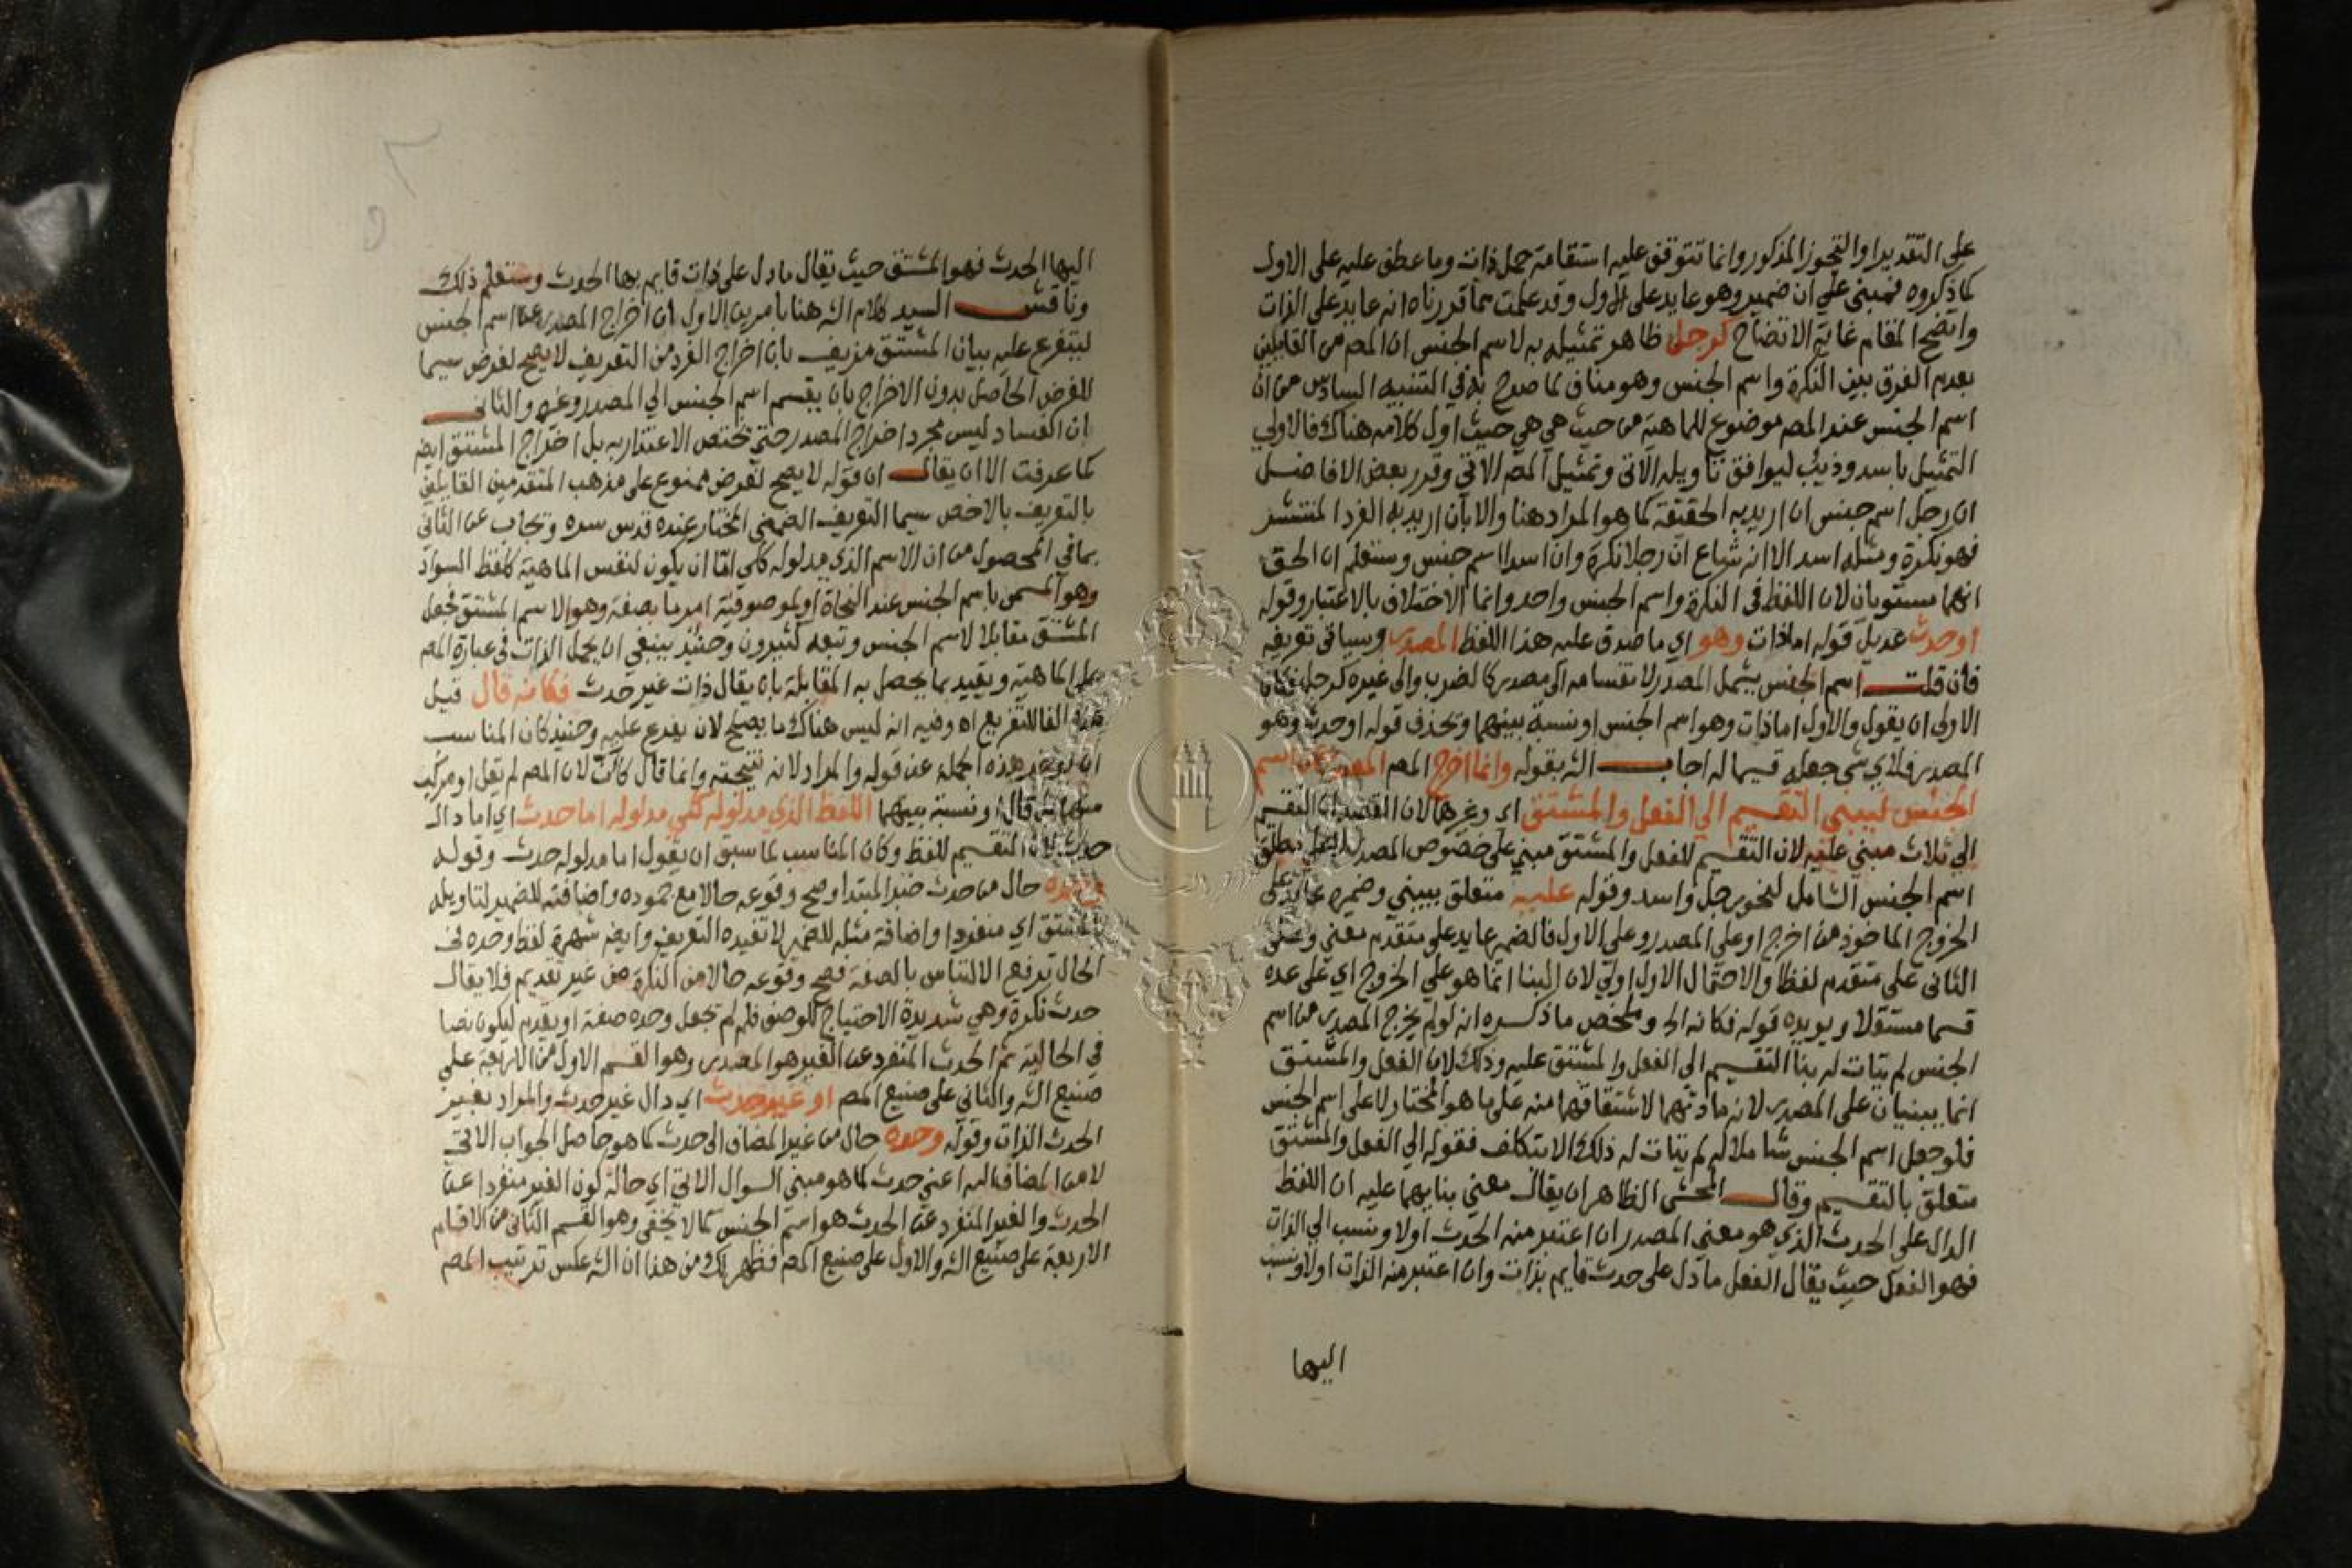 على التقدير او التجوز المذكور وانما تتوقف عليه استقامة حمل ذات وما عطف عليه على الاول
كما ذكروه فمبني على ان ضمير وهو عايد على الاول وقد علمت مما قررناه انه عايد على الذات
واتضح المقام غاية الاتضاح كرجل ظاهر تمثيله به لاسم الجنس ان المصم من القايلين
بعدم الفرق بين النكرة واسم الجنس وهو مناف لما صرح به في التنبيه السادس من ان
اسم الجنس عند المصم موضوع للماهية من حيث هي هي حيث اول كلامه هناك فالاولى
التمثيل باسد وذيب ليوافق تاويله الاتي وتمثيل المصم الاتي وقرر بعض الافاضل
ان رجل اسم جنس ان اريد به الحقيقة كما هو المراد هنا والا بان اريد به الفرد المنتشر
فهو نكرة ومثله اسد الا انه شاع ان رجلا نكرة وان اسدا اسم جنس وستعلم ان الحق
انهما مستويان لان اللفظ في النكرة واسم الجنس واحد وانما الاختلاف بالاعتبار وقوله
او حدث عديل قوله اما ذات وهو اي ما صدق عليه هذا اللفظ المصدر وسياتي تعريفه
فان قلت اسم الجنس يشمل المصدر لانقسامه الى مصدر كالضرب والى غيره كرجل فكان
الاولى ان يقول والاول اما ذات وهو اسم الجنس او نسبة بينهما وتحذف قوله او حدث وهو
المصدر فلاي شي جعله قسيما له اجاب الشه بقوله وانما اخرج المصم المصدر من اسم
الجنس ليبني التقسيم الي الفعل والمشتق اي وغيرهما لان القصد ان التقسيم
الى ثلاث مبني عليه لان التقسيم للفعل والمشتق مبني على خصوص المصدر لا على مطلق
اسم الجنس الشامل لنحو رجل واسد وقوله عليه متعلق بيبني وضميره عايد على
الخروج الماخوذ من اخرج او على المصدر وعلى الاول فالضمير عايد على متقدم معنى وعلى
الثاني على متقدم لفظا والاحتمال الاول اولى لان البنا انما هو على الخروج اي على عده
قسما مستقلا ويويده قوله فكانه الخ وملخص ما ذكره انه لو لم يخرج المصدر من اسم
الجنس لم يتات له بنا التقسيم الى الفعل والمشتق عليه وذلك لان الفعل والمشتق
انما يبنيان على المصدر لانه مادتهما لاشتقاقهما منه على ما هو المختار لا على اسم الجنس
فلو جعل اسم الجنس شاملا له لم يتات له ذلك الا بتكلف فقوله الي الفعل والمشتق
متعلق بالتقسيم وقال المحشي الظاهر ان يقال معنى بنايهما عليه ان اللفظ
الدال على الحدث الذي هو معنى المصدر ان اعتبر منه الحدث اولا ونسب الي الذات
فهو الفعل حيث يقال الفعل ما دل على حدث قايم بذات وان اعتبر منه الذات اولا ونسب
اليها
اليها الحدث فهو المشتق حيث يقال ما دل على ذات قايم بها الحدث وستعلم ذلك
وناقش السيد كلام الشه هنا بامرين الاول ان اخراج المصدر عن اسم الجنس
ليتفرع عليه بيان المشتق مزيف بان اخراج الفرد من التعريف لا يصح لغرض سيما
الغرض الحاصل بدون الاخراج بان يقسم اسم الجنس الي المصدر وغيره والثاني
ان الفساد ليس مجرد اخراج المصدر حتى تختص الاعتذار به بل اخراج المشتق ايضا
كما عرفت الا ان يقال ان قوله لا يصح لغرض ممنوع على مذهب المتقدمين القايلين
بالتعريف بالاخص سيما التعريف الضمني المختار عنده قدس سره وتجاب عن الثاني
بما في المحصول من ان الاسم الذي مدلوله كلي اما ان يكون لنفس الماهية كلفظ السواد
وهو المسمى باسم الجنس عند النحاة او لموصوفية امر ما بصفة وهو الاسم المشتق فجعل
المشتق مقابلا لاسم الجنس وتبعه كثيرون وحنئذ ينبغي ان يحمل الذات في عبارة المصم
على الماهية ويقيد بما يحصل به المقابلة بان يقال ذات غير حدث فكانه قال قيل
هذه الفا للتفريع اه وفيه انه ليس هناك ما يصلح لان يفرع عليه وحنئذ كان المناسب
ان يوخر هذه الجملة عن قوله والمراد لانه نتيجته وانما قال كان لان المصم لم يقل او مركب
منهما بل قال او نسبة بينهما اللفظ الذي مدلوله كلي مدلوله اما حدث اي اما دال
حدث لان التقسيم للفظ وكان المناسب لما سبق ان يقول اما مدلوله حدث وقوله
وحده حال من حدث خبر المبتدا وصح وقوعه حالا مع جموده واضافته للضمير لتاويله
بالمشتق اي منفردا واضافة مثله للضمير لا تفيده التعريف وايضا شهرة لفظ وحده في
الحال يدفع الالتباس بالصفة فصح وقوعه حالا من النكرة من غير تقديم فلا يقال
حدث نكرة وهي شديدة الاحتياج للوصف فلم لم تجعل وحده صفة او يقدم ليكون نصا
في الحالية ثم الحدث المنفرد عن الغير هو المصدر وهو القسم الاول من الاربعة على
صنيع الشه والثاني على صنيع المصم او غير حدث اي دال غير حدث والمراد بغير
الحدث الذات وقوله وحده حال من غير المضاف الى حدث كما هو حاصل الجواب الاتي
لا من المضاف اليه اعني حدث كما هو مبني السوال الاتي اي حالة كون الغير منفردا عن
الحدث والغير المنفرد عن الحدث هو اسم الجنس كما لا يخفى وهو القسم الثاني من الاقسام
الاربعة على صنيع الشه والاول على صنيع المصم فظهر لك من هذا ان الشه عكس ترتيب المصم